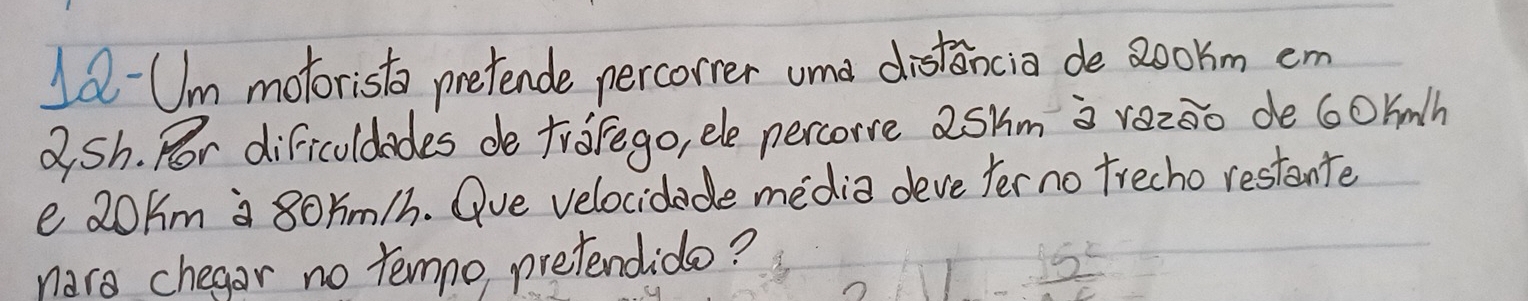 12-Um motorista pretende percorrer uma distância de 200Km em
2,5h. Por dificuldades de tráfego, ele percorre 25Km à razão de 60Km/h
e 20Km à 80Km/h. Que velocidade média deve ter no trecho restante
para chegar no tempo, pretendido?